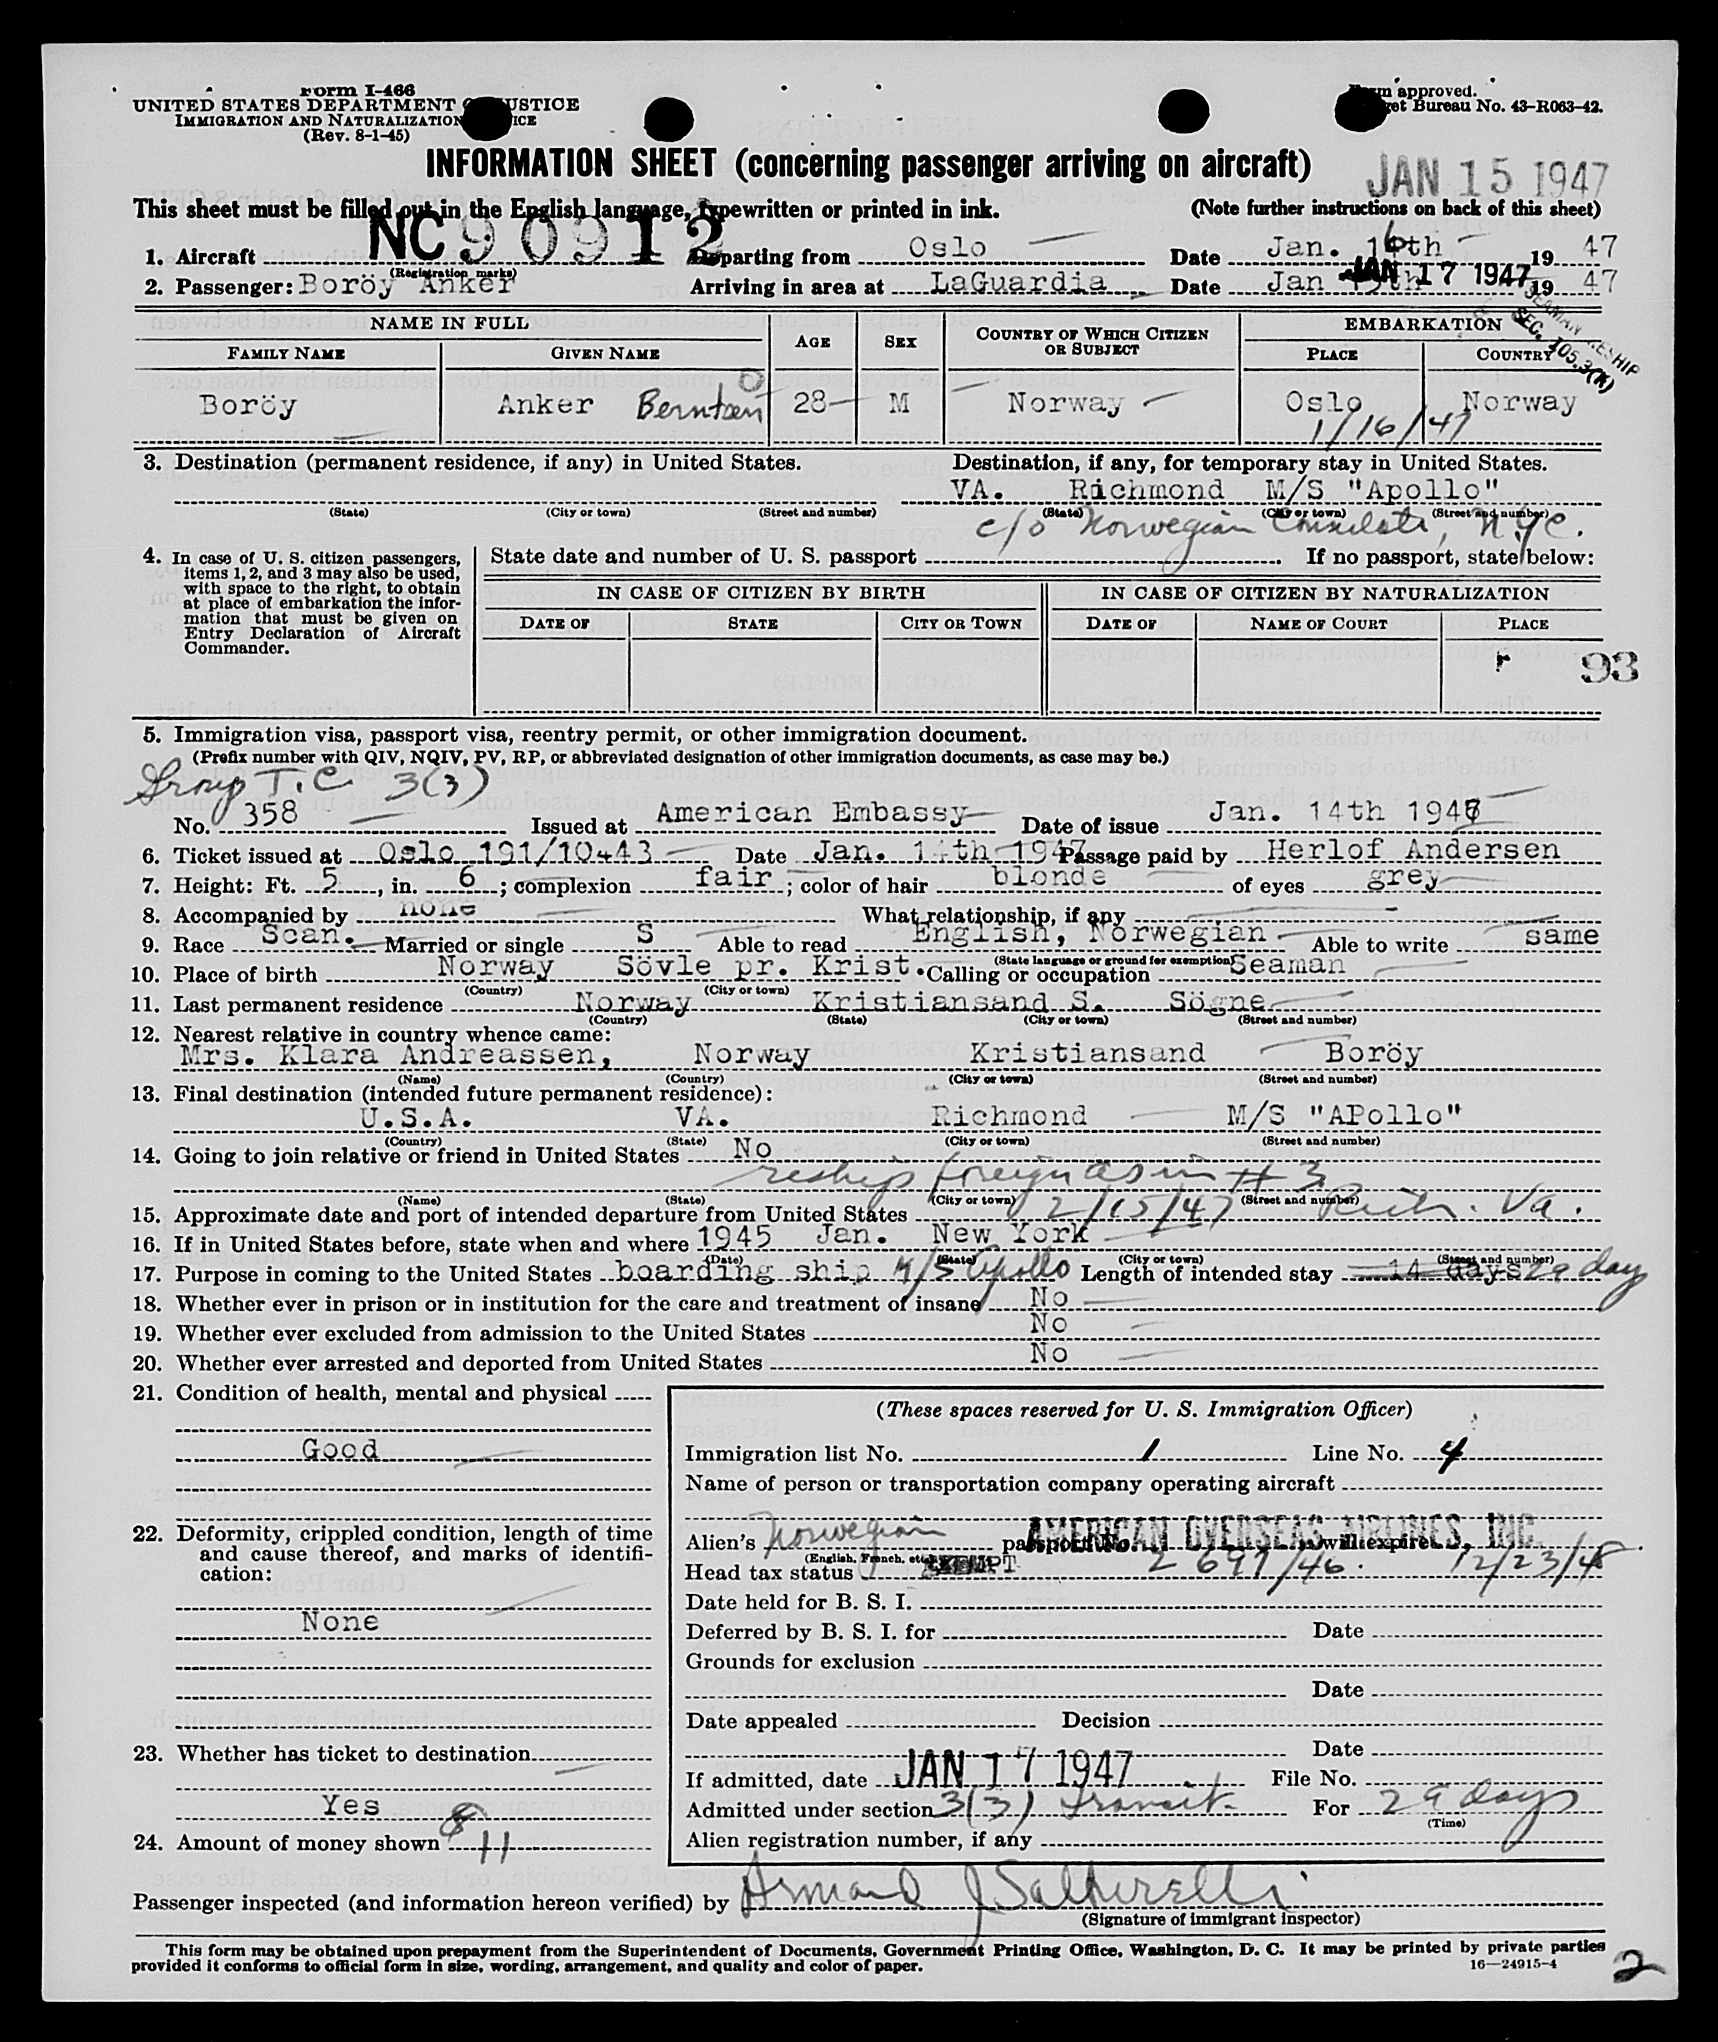 Form I-466
UNITED STATES DEPARTMENT OF JUSTICE
IMMIGRATION AND NATURALIZATION SERVICE
(Rev. 8-1-45)
Form approved.
Budget Bureau No. 43-R063-42.
INFORMATION SHEET (concerning passenger arriving on aircraft)
JAN 15 1947
This sheet must be filled out in the English language, typewritten or printed in ink.
(Note further instructions on back of this sheet)
1. Aircraft NC 90912 Departing from Oslo Date Jan. 16th 1947
(Registration marks)
2. Passenger: Boröy Anker Arriving in area at LaGuardia Date Jan JAN 17 1947 1947
SEAMAN RESHIP
SEC. 105.3(K)
NAME IN FULL AGE SEX COUNTRY OF WHICH CITIZEN OR SUBJECT EMBARKATION
FAMILY NAME GIVEN NAME PLACE COUNTRY
Boröy Anker Berntzen 28 M Norway Oslo Norway
1/16/47
3. Destination (permanent residence, if any) in United States. Destination, if any, for temporary stay in United States.
VA. Richmond M/S "Apollo"
(State) (City or town) (Street and number) (State) (City or town) (Street and number)
c/o Norwegian Consulate, N.Y.C.
4. In case of U. S. citizen passengers, items 1, 2, and 3 may also be used, with space to the right, to obtain at place of embarkation the information that must be given on Entry Declaration of Aircraft Commander.
State date and number of U. S. passport If no passport, state below:
IN CASE OF CITIZEN BY BIRTH IN CASE OF CITIZEN BY NATURALIZATION
DATE OF STATE CITY OR TOWN DATE OF NAME OF COURT PLACE
93
5. Immigration visa, passport visa, reentry permit, or other immigration document.
(Prefix number with QIV, NQIV, PV, RP, or abbreviated designation of other immigration documents, as case may be.)
Group T.C. 3(3)
No. 358 Issued at American Embassy Date of issue Jan. 14th 1947
6. Ticket issued at Oslo 191/10443 Date Jan. 14th 1947 Passage paid by Herlof Andersen
7. Height: Ft. 5, in. 6; complexion fair; color of hair blonde of eyes grey
8. Accompanied by none What relationship, if any
9. Race Scan. Married or single S Able to read English, Norwegian Able to write same
(State language or ground for exemption)
10. Place of birth Norway Sövle pr. Krist. Calling or occupation Seaman
(Country) (City or town)
11. Last permanent residence Norway Kristiansand S. Sögne
(Country) (State) (City or town) (Street and number)
12. Nearest relative in country whence came:
Mrs. Klara Andreassen, Norway Kristiansand Boröy
(Name) (Country) (City or town) (Street and number)
13. Final destination (intended future permanent residence):
U.S.A. VA. Richmond M/S "APollo"
(Country) (State) (City or town) (Street and number)
14. Going to join relative or friend in United States No
reship foreign as in # 3
(Name) (State) (City or town) (Street and number)
15. Approximate date and port of intended departure from United States 2/15/47 Rich. Va.
16. If in United States before, state when and where 1945 Jan. New York
(Date) (State) (City or town) (Street and number)
17. Purpose in coming to the United States boarding ship M/S Apollo Length of intended stay 14 days 29 days
18. Whether ever in prison or in institution for the care and treatment of insane No
19. Whether ever excluded from admission to the United States No
20. Whether ever arrested and deported from United States No
21. Condition of health, mental and physical
Good
22. Deformity, crippled condition, length of time and cause thereof, and marks of identification:
None
23. Whether has ticket to destination
Yes
24. Amount of money shown $ 11
(These spaces reserved for U. S. Immigration Officer)
Immigration list No. 1 Line No. 4
Name of person or transportation company operating aircraft
AMERICAN OVERSEAS AIRLINES, INC.
Alien's Norwegian passport No. will expire
(English, French, etc.)
Head tax status EXEMPT 2 697/46. 12/23/48
Date held for B. S. I.
Deferred by B. S. I. for Date
Grounds for exclusion
Date
Date appealed Decision
Date
If admitted, date JAN 17 1947 File No.
Admitted under section 3(3) transit For 29 days
(Time)
Alien registration number, if any
Passenger inspected (and information hereon verified) by Armand J Salturelli
(Signature of immigrant inspector)
This form may be obtained upon prepayment from the Superintendent of Documents, Government Printing Office, Washington, D. C. It may be printed by private parties
provided it conforms to official form in size, wording, arrangement, and quality and color of paper.
16—24915-4
2